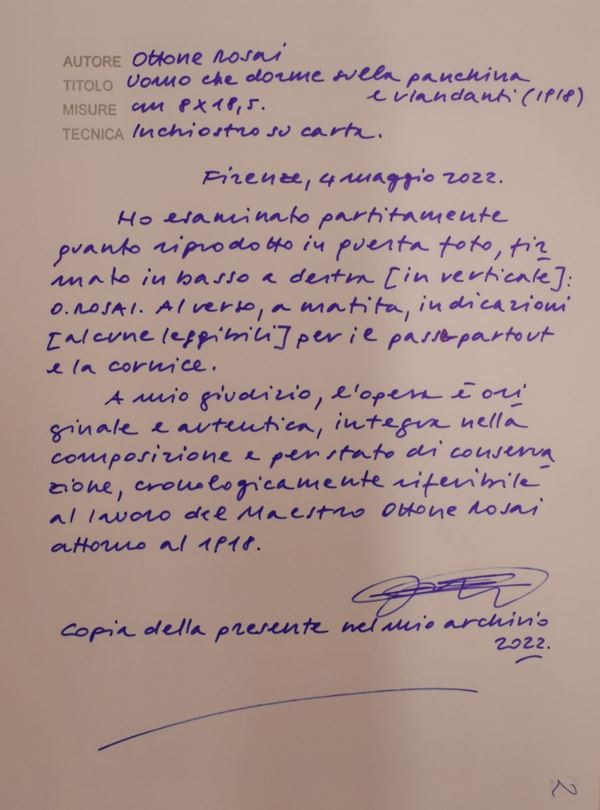 AUTORE Ottone Rosai
TITOLO Uomo che dorme sulla panchina
e viandanti (1918)
MISURE cm 8x18,5.
TECNICA Inchiostro su carta.
Firenze, 4 maggio 2022.
Ho esaminato partitamente
quanto riprodotto in questa foto, fir
mato in basso a destra [in verticale]:
O.ROSAI. Al verso, a matita, indicazioni
[alcune leggibili] per il passepartout
e la cornice.
A mio giudizio, l'opera è ori
ginale e autentica, integra nella
composizione e per stato di conserva
zione, cronologicamente riferibile
al lavoro del Maestro Ottone Rosai
attorno al 1918.
Copia della presente nel mio archivio
2022.